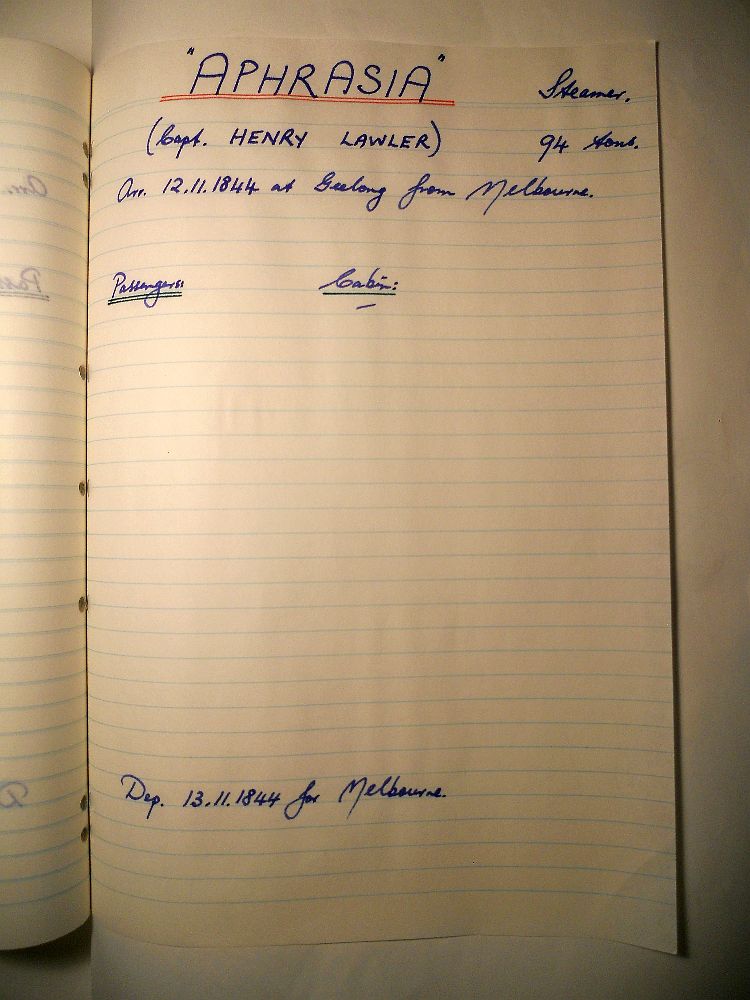 "APHRASIA" Steamer.
(Capt. HENRY LAWLER) 94 tons.
Arr. 12.11.1844 at Geelong from Melbourne.
Passengers: Cabin:
—
Dep. 13.11.1844 for Melbourne.